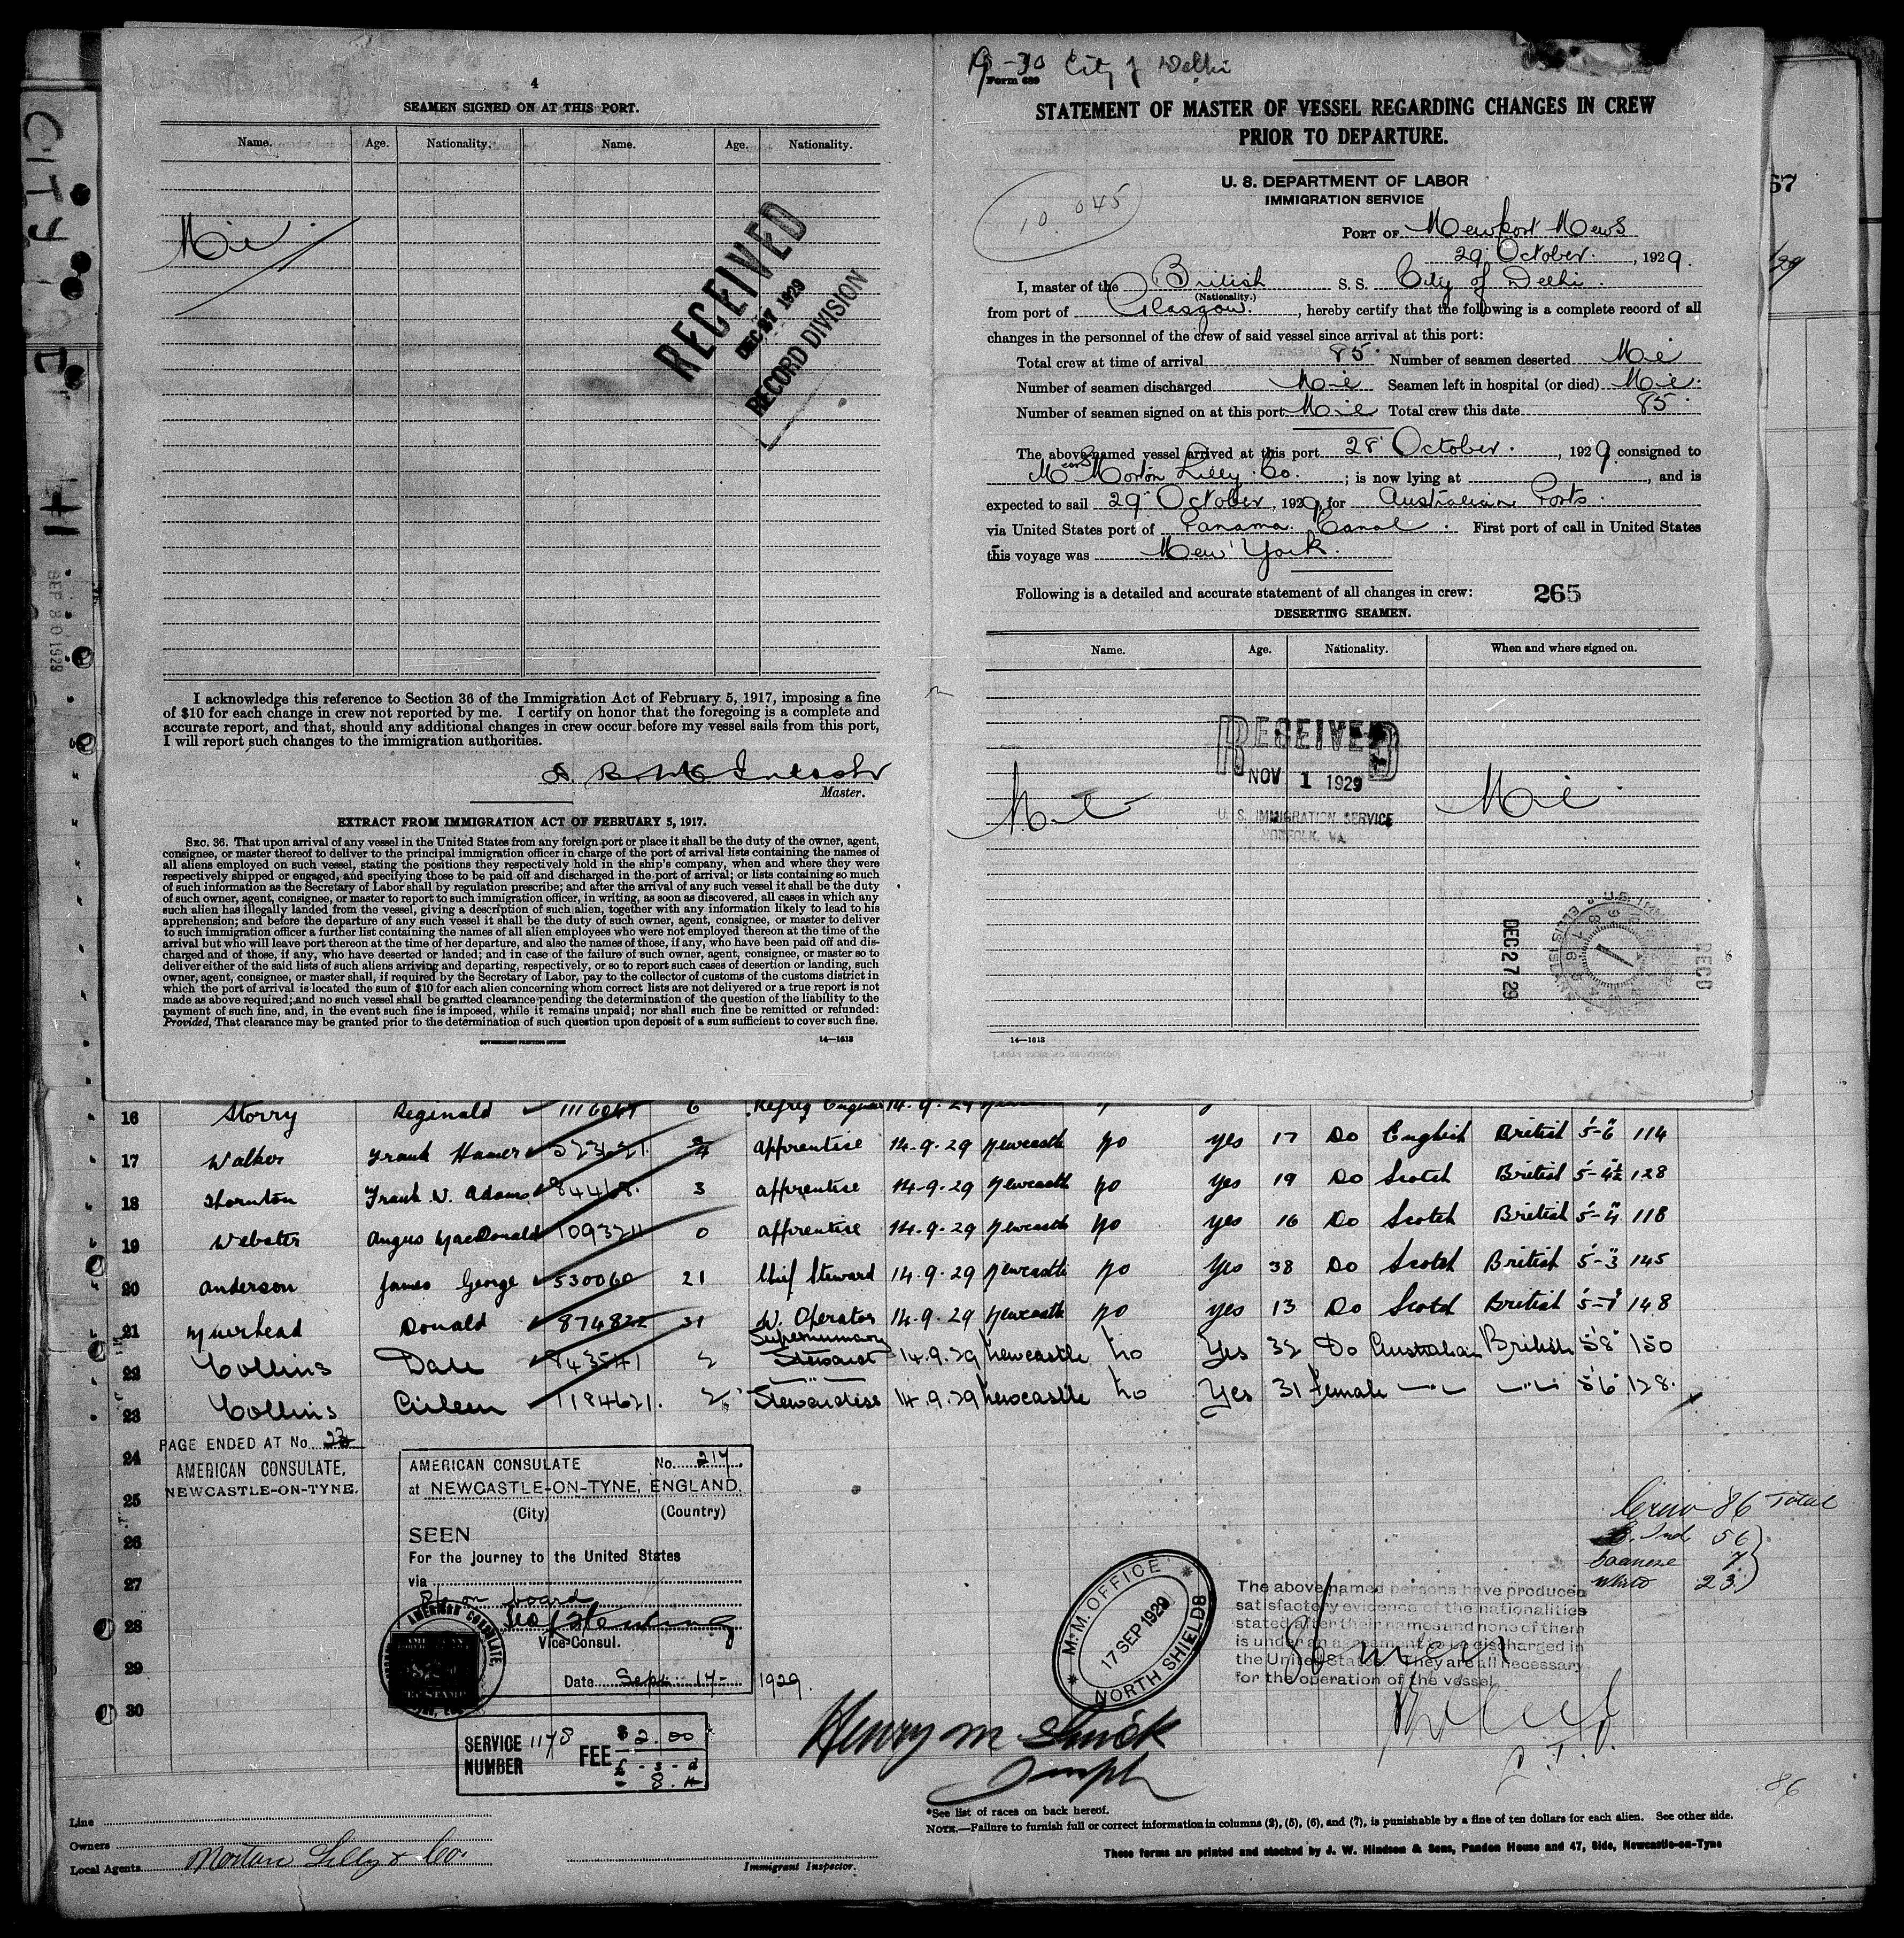 4
SEAMEN SIGNED ON AT THIS PORT.
Name. Age. Nationality. Name. Age. Nationality.
RECEIVED
DEC 27 1929
RECORD DIVISION
I acknowledge this reference to Section 36 of the Immigration Act of February 5, 1917, imposing a fine
of $10 for each change in crew not reported by me. I certify on honor that the foregoing is a complete and
accurate report, and that, should any additional changes in crew occur before my vessel sails from this port,
I will report such changes to the immigration authorities.
Master.
EXTRACT FROM IMMIGRATION ACT OF FEBRUARY 5, 1917.
SEC. 36. That upon arrival of any vessel in the United States from any foreign port or place it shall be the duty of the owner, agent,
consignee, or master thereof to deliver to the principal immigration officer in charge of the port of arrival lists containing the names of
all aliens employed on such vessel, stating the positions they respectively hold in the ship's company, when and where they were
respectively shipped or engaged, and specifying those to be paid off and discharged in the port of arrival; or lists containing so much
of such information as the Secretary of Labor shall by regulation prescribe; and after the arrival of any such vessel it shall be the duty
of such owner, agent, consignee, or master to report to such immigration officer, in writing, as soon as discovered, all cases in which any
such alien has illegally landed from the vessel, giving a description of such alien, together with any information likely to lead to his
apprehension; and before the departure of any such vessel it shall be the duty of such owner, agent, consignee, or master to deliver
to such immigration officer a further list containing the names of all alien employees who were not employed thereon at the time of the
arrival but who will leave port thereon at the time of her departure, and also the names of those, if any, who have been paid off and dis-
charged and of those, if any, who have deserted or landed; and in case of the failure of such owner, agent, consignee, or master so to
deliver either of the said lists of such aliens arriving and departing, respectively, or so to report such cases of desertion or landing, such
owner, agent, consignee, or master shall, if required by the Secretary of Labor, pay to the collector of customs of the customs district in
which the port of arrival is located the sum of $10 for each alien concerning whom correct lists are not delivered or a true report is not
made as above required; and no such vessel shall be granted clearance pending the determination of the question of the liability to the
payment of such fine, and, in the event such fine is imposed, while it remains unpaid; nor shall such fine be remitted or refunded:
Provided, That clearance may be granted prior to the determination of such question upon deposit of a sum sufficient to cover such fine.
GOVERNMENT PRINTING OFFICE 14—1613
City of Delhi
Form 689
STATEMENT OF MASTER OF VESSEL REGARDING CHANGES IN CREW
PRIOR TO DEPARTURE.
U. S. DEPARTMENT OF LABOR
IMMIGRATION SERVICE
10.045
PORT OF Newport News
29 October, 1929.
I, master of the British S. S. City of Delhi.
(Nationality.)
from port of Glasgow., hereby certify that the following is a complete record of all
changes in the personnel of the crew of said vessel since arrival at this port:
Total crew at time of arrival 85. Number of seamen deserted Nil
Number of seamen discharged Nil Seamen left in hospital (or died) Nil.
Number of seamen signed on at this port Nil Total crew this date 85.
The above-named vessel arrived at this port 28 October., 1929. consigned to
Messrs Morton Lilly Co.; is now lying at , and is
expected to sail 29 October, 1929, for Australian Ports.
via United States port of Panama Canal. First port of call in United States
this voyage was New York.
Following is a detailed and accurate statement of all changes in crew: 265
DESERTING SEAMEN.
Name. Age. Nationality. When and where signed on.
RECEIVED
NOV 1 1929
U. S. IMMIGRATION SERVICE
NORFOLK, VA.
Nil Nil
DEC 27 29
REC'D
14—1613
67
SEP 30 1929
16 Storry Reginald 6 Refreg Engineer 14.9.29
17 Walker Frank Hamer apprentice 14.9.29 Newcastle no yes 17 Do English British 5-6 114
18 Thornton Frank W. Adams 3 apprentice 14-9-29 Newcastle no yes 19 Do Scotch British 5-4½ 128
19 Webster Angus MacDonald 0 apprentice 14.9.29 Newcastle no yes 16 Do Scotch British 5-4 118
20 Anderson James George 530060 21 Chief Steward 14.9.29 Newcastle no yes 38 Do Scotch British 5-3 145
21 Muirhead Donald 874822 W. Operator 14.9.29 Newcastle no yes Do Scotch British 148
22 Collins Dale 2 Supernumary Steward 14.9.29 Newcastle no Yes 32 Do Australian British 5'8" 150
23 Collins Eileen 1184621. 2 Stewardess 14.9.29 Newcastle no Yes 31 Female 5'6" 128.
24
25
26
27
28
29
30
PAGE ENDED AT No. 23
AMERICAN CONSULATE,
NEWCASTLE-ON-TYNE.
AMERICAN CONSULATE No. 214
at NEWCASTLE-ON-TYNE, ENGLAND.
(City) (Country)
SEEN
For the journey to the United States
via
86 on board
Vice-Consul.
Date Sept. 17- 1929.
AMERICAN CONSULATE,
SERVICE NUMBER 1178 FEE $2.00
£ - s - d
M.M. OFFICE
17 SEP 1929
NORTH SHIELDS
Crew 86 Total
B. Ind. 56
Goanese 7
White 23
The above named persons have produced
satisfactory evidence of the nationalities
stated after their names and none of them
is under an agreement to be discharged in
the United States. They are all necessary
for the operation of the vessel
86
Line
Owners
Local Agents Morton Lilly & Co.
Immigrant Inspector.
*See list of races on back hereof.
NOTE.—Failure to furnish full or correct information in columns (2), (5), (6), and (7), is punishable by a fine of ten dollars for each alien. See other side.
These forms are printed and stocked by J. W. Hindson & Sons, Pandon House and 47, Side, Newcastle-on-Tyne